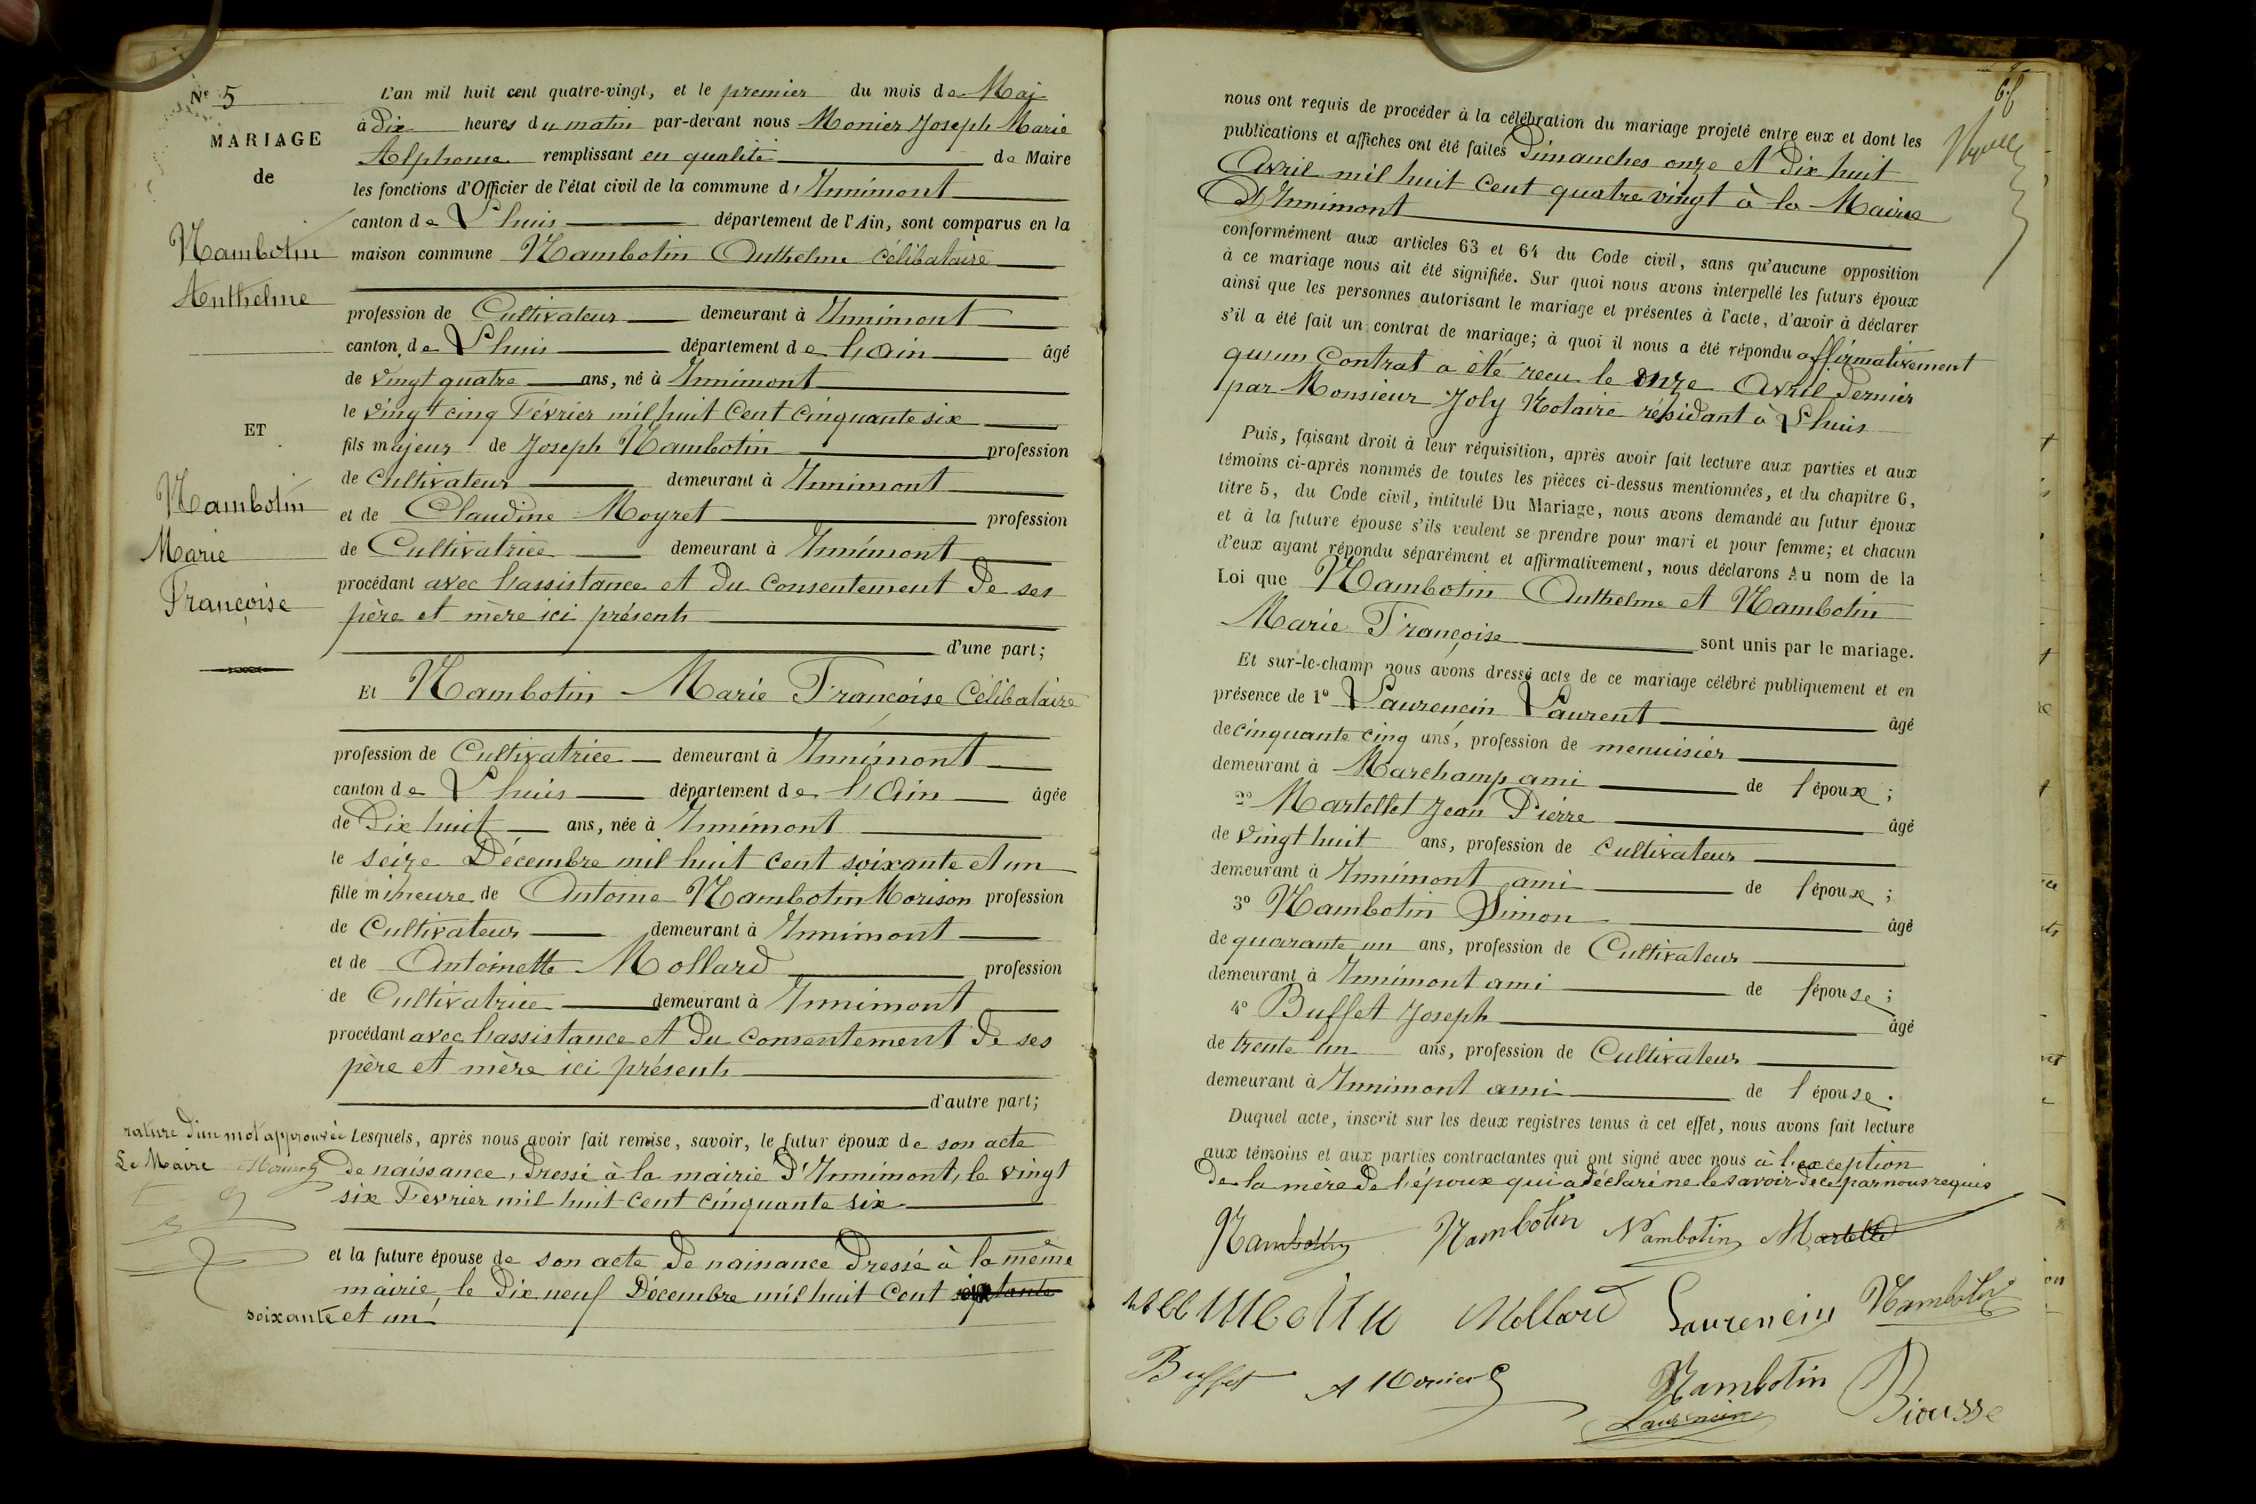 N° 5
MARIAGE
de
Nambotin
Anthelme
ET
Nambotin
Marie
Françoise
L'an mil huit cent quatre-vingt, et le premier du mois de Mai
à Dix heures du matin par-devant nous Monier Joseph Marie
Alphonse remplissant en qualité de Maire
les fonctions d'Officier de l'état civil de la commune d'Innimont
canton de Lhuis département de l'Ain, sont comparus en la
maison commune Nambotin Anthelme célibataire
profession de Cultivateur demeurant à Innimont
canton de Lhuis département de l'Ain âgé
de vingt quatre ans, né à Innimont
le vingt cinq Février mil huit Cent cinquante six
fils majeur de Joseph Nambotin profession
de cultivateur demeurant à Innimont
et de Claudine Moyret profession
de Cultivatrice demeurant à Innimont
procédant avec l'assistance et du consentement de ses
père et mère ici présents
d'une part;
Et Nambotin Marie Françoise Célibataire
profession de Cultivatrice demeurant à Innimont
canton de Lhuis département de l'Ain âgée
de Dix huit ans, née à Innimont
le seize Décembre mil huit cent soixante et un
fille mineure de Antoine Nambotin Morison profession
de Cultivateur demeurant à Innimont
et de Antoinette Mollard profession
de Cultivatrice demeurant à Innimont
procédant avec l'assistance et du consentement de ses
père et mère ici présents
d'autre part;
rature d'un mot approuvée
Le Maire Monier
Lesquels, après nous avoir fait remise, savoir, le futur époux de son acte
de naissance, dressé à la mairie d'Innimont, le vingt
six Février mil huit cent cinquante six
et la future épouse de son acte de naissance dressé à la même
mairie, le Dix neuf Décembre mil huit Cent
soixante et un
66
nous ont requis de procéder à la célébration du mariage projeté entre eux et dont les
publications et affiches ont été faites Dimanches onze et Dix huit
Avril mil huit cent quatre vingt à la Mairie
d'Innimont
conformément aux articles 63 et 64 du Code civil, sans qu'aucune opposition
à ce mariage nous ait été signifiée. Sur quoi nous avons interpellé les futurs époux
ainsi que les personnes autorisant le mariage et présentes à l'acte, d'avoir à déclarer
s'il a été fait un contrat de mariage; à quoi il nous a été répondu affirmativement
qu'un Contrat a été recu le onze Avril dernier
par Monsieur Joly Notaire résidant à Lhuis
Puis, faisant droit à leur réquisition, après avoir fait lecture aux parties et aux
témoins ci-après nommés de toutes les pièces ci-dessus mentionnées, et du chapitre 6,
titre 5, du Code civil, intitulé Du Mariage, nous avons demandé au futur époux
et à la future épouse s'ils veulent se prendre pour mari et pour femme; et chacun
d'eux ayant répondu séparément et affirmativement, nous déclarons Au nom de la
Loi que Nambotin Anthelme et Nambotin
Marie Françoise sont unis par le mariage.
Et sur-le-champ nous avons dressé acte de ce mariage célébré publiquement et en
présence de 1° Laurencin Laurent âgé
de cinquante cinq ans, profession de menuisier
demeurant à Marchamp ami de l'époux;
2° Martellet Jean Pierre âgé
de vingt huit ans, profession de cultivateur
demeurant à Innimont ami de l'époux;
3° Nambotin Simon âgé
de quarante un ans, profession de Cultivateur
demeurant à Innimont ami de l'épouse;
4° Buffet Joseph âgé
de trente un ans, profession de Cultivateur
demeurant à Innimont ami de l'épouse.
Duquel acte, inscrit sur les deux registres tenus à cet effet, nous avons fait lecture
aux témoins et aux parties contractantes qui ont signé avec nous à l'exception
de la mère de l'époux qui a déclaré ne le savoir de ce par nous requis
Nambotin Nambotin Nambotin Martellet
Mollard Laurencin Nambotin
Buffet A Monier Nambotin
Laurencin Biousse